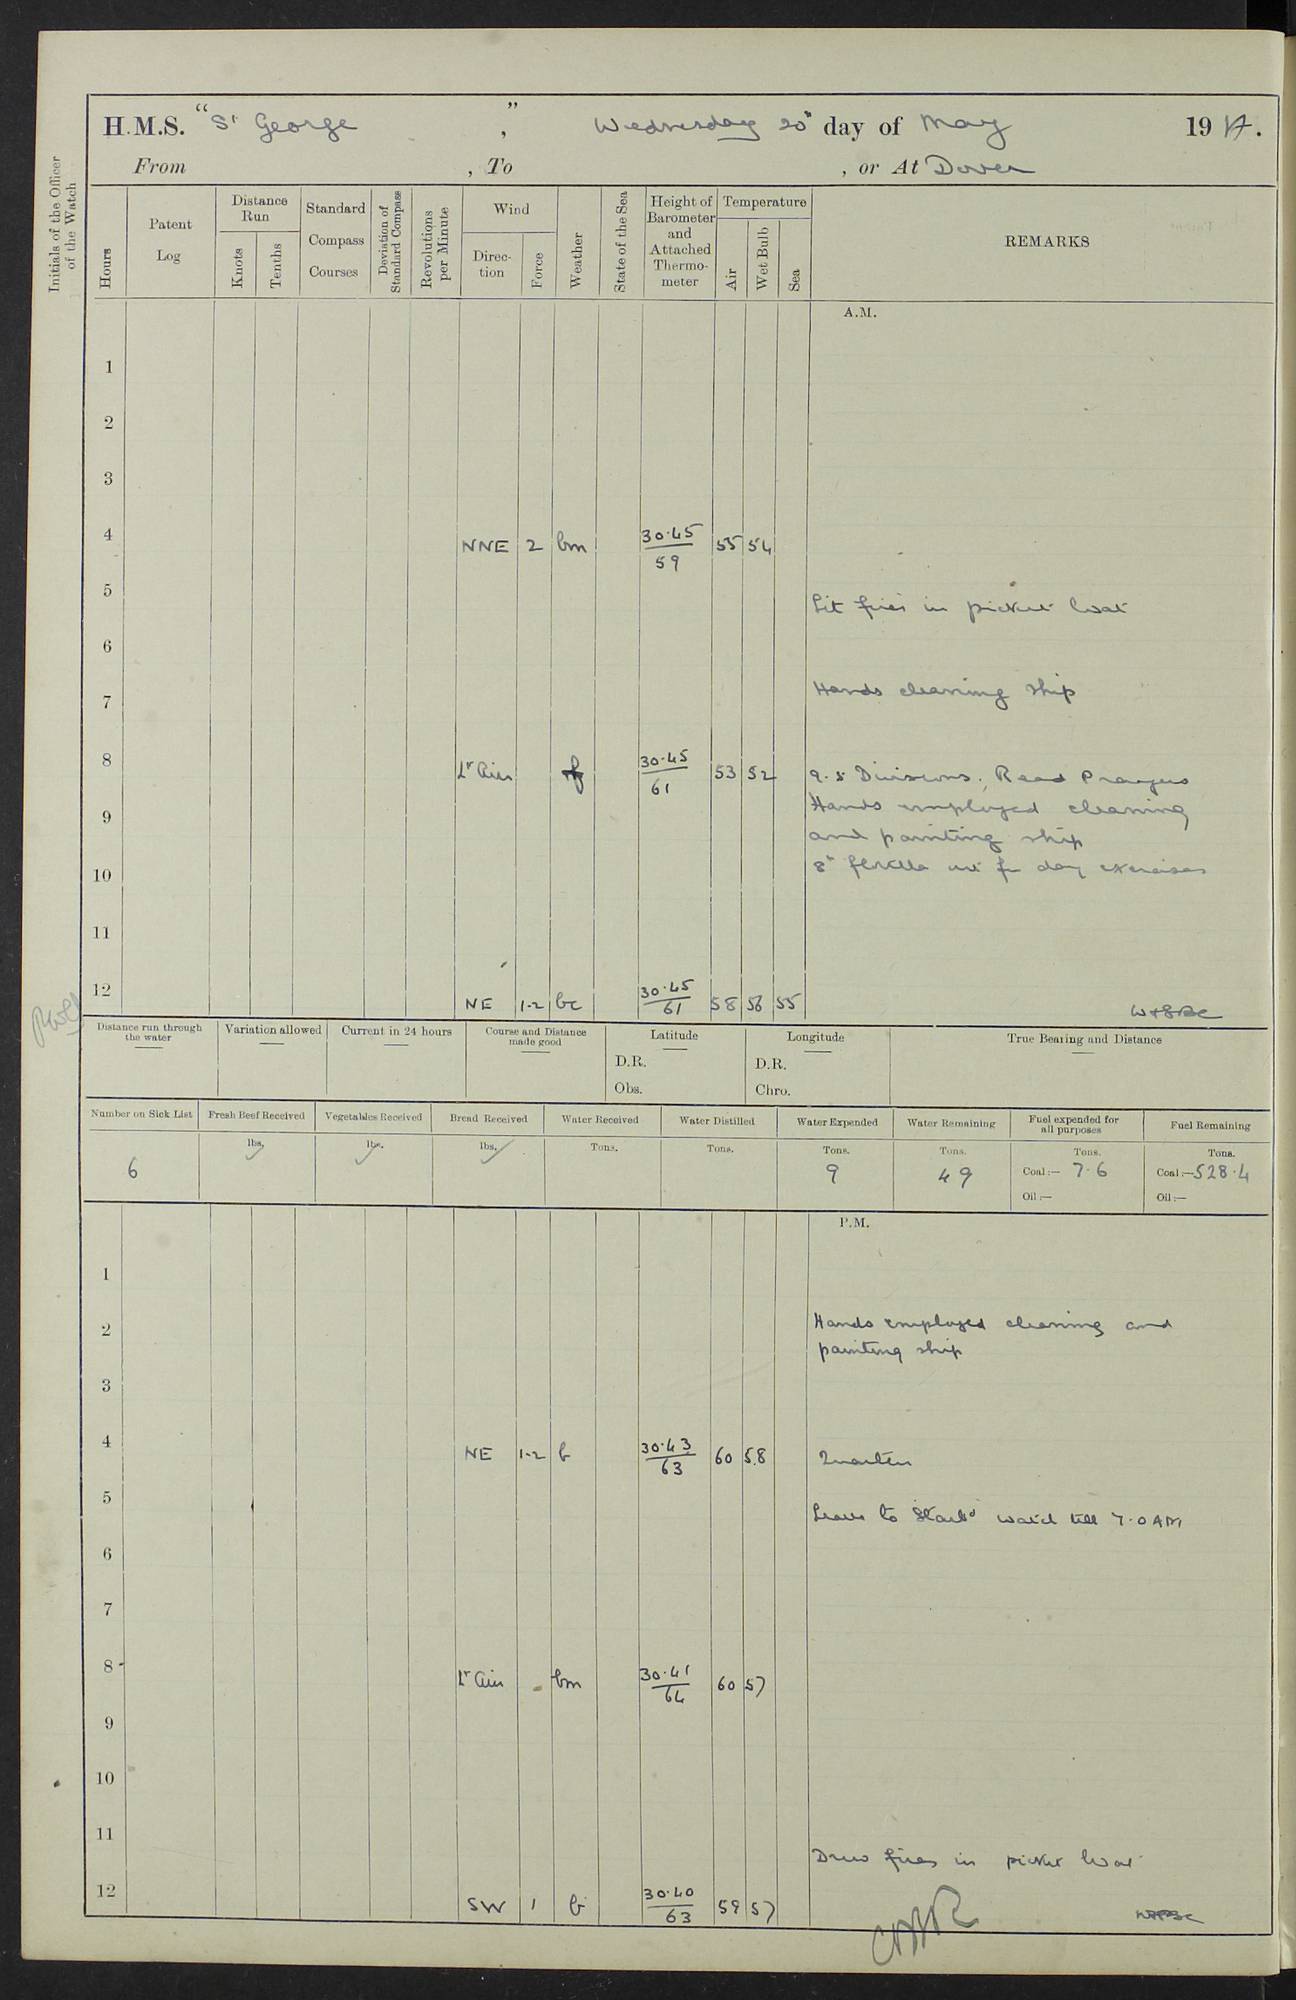 H.M.S. "St George", Wednesday 20th day of May 1914.
From , To , or At Dover
Initials of the Officer of the Watch
Hours
Patent Log
Distance Run
Knots
Tenths
Standard Compass Courses
Deviation of Standard Compass
Revolutions per Minute
Wind
Direction
Force
Weather
State of the Sea
Height of Barometer and Attached Thermometer
Temperature
Air
Wet Bulb
Sea
REMARKS
A.M.
1
2
3
4 NNE 2 bm 30.45 55 54
59
5
Lit fires in picket boat
6
Hands cleaning ship
7
8 Lt Airs f 30.45 53 52 9.5 Divisions. Read Prayers
61
9 Hands employed cleaning
and painting ship
10 8th flotilla out for day exercises
11
12 NE 1-2 bc 30.45 58 56 55
61
Distance run through the water
Variation allowed
Current in 24 hours
Course and Distance made good
Latitude
D.R.
Obs.
Longitude
D.R.
Chro.
True Bearing and Distance
Number on Sick List Fresh Beef Received Vegetables Received Bread Received Water Received Water Distilled Water Expended Water Remaining Fuel expended for all purposes Fuel Remaining
lbs. lbs. lbs. Tons. Tons. Tons. Tons. Tons. Tons.
6 9 49 Coal:— 7.6 Coal:— 528.4
Oil:— Oil:—
P.M.
1
2 Hands employed cleaning and
painting ship
3
4 NE 1-2 b 30.43 60 58 Quarters
63
5 Leave to Starbd watch till 7.0 AM
6
7
8 Lt Airs bm 30.41 60 57
64
9
10
11
Drew fires in picket boat
12 SW 1 b 30.40 59 57
63